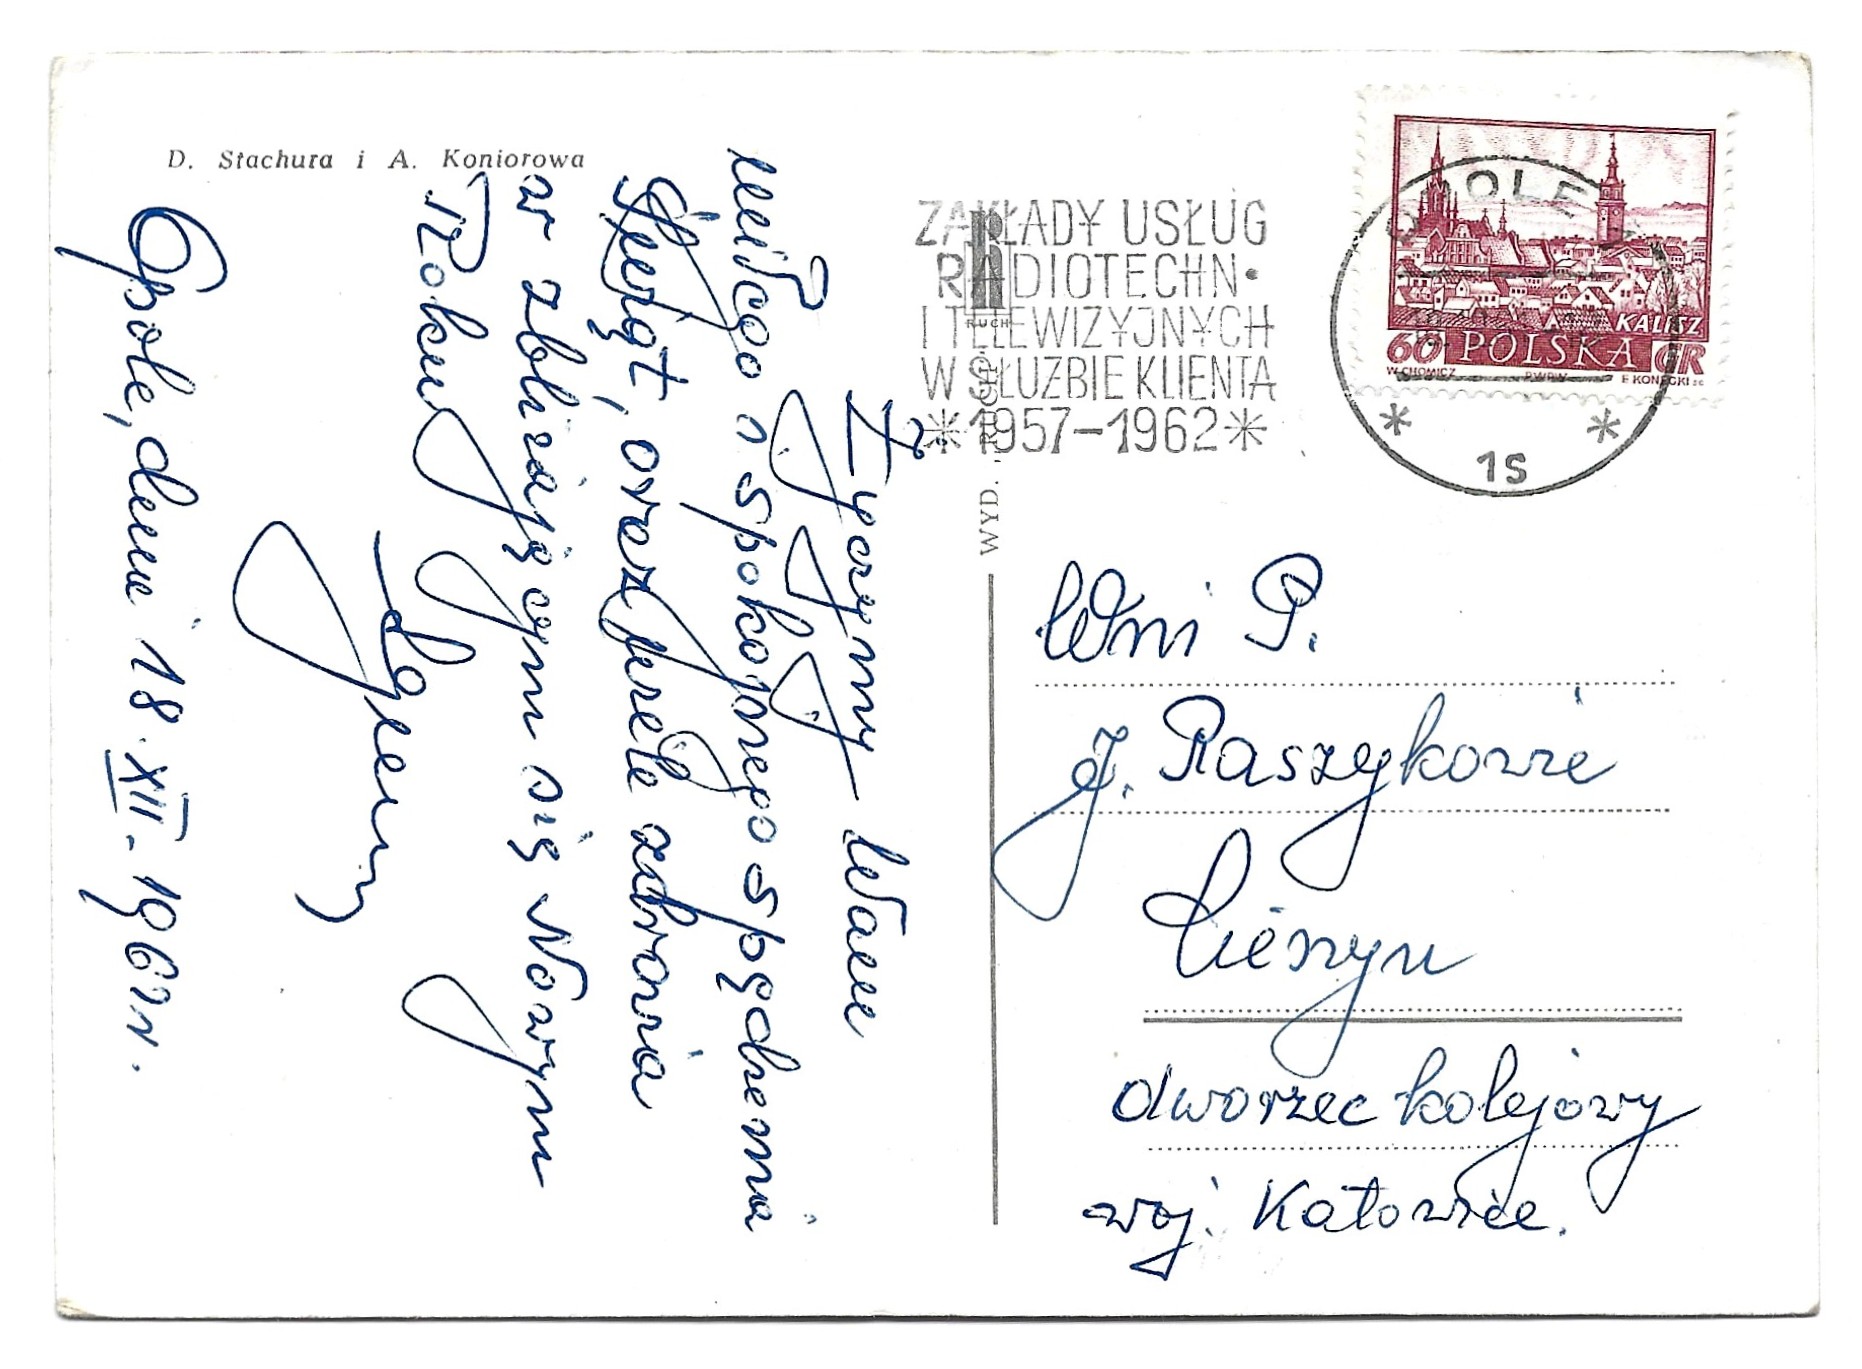 D. Stachura i A. Koniorowa
Życzymy Wam
miłego i spokojnego spędzenia
Świąt, oraz wiele zdrowia
w zbliżającym się Nowym
Roku
Opole, dnia 18.XII.1962r.
ZAKŁADY USŁUG
RADIOTECHN.
I TELEWIZYJNYCH
W SŁUŻBIE KLIENTA
*1957-1962*
RUCH
WYD. "RUCH"
OPOLE
1s
KALISZ
60 POLSKA GR
W CHOMICZ P.W.P.W. E KONECKI sc
Wni P.
J. Raszykowie
Cieszyn
dworzec kolejowy
woj. Katowice.